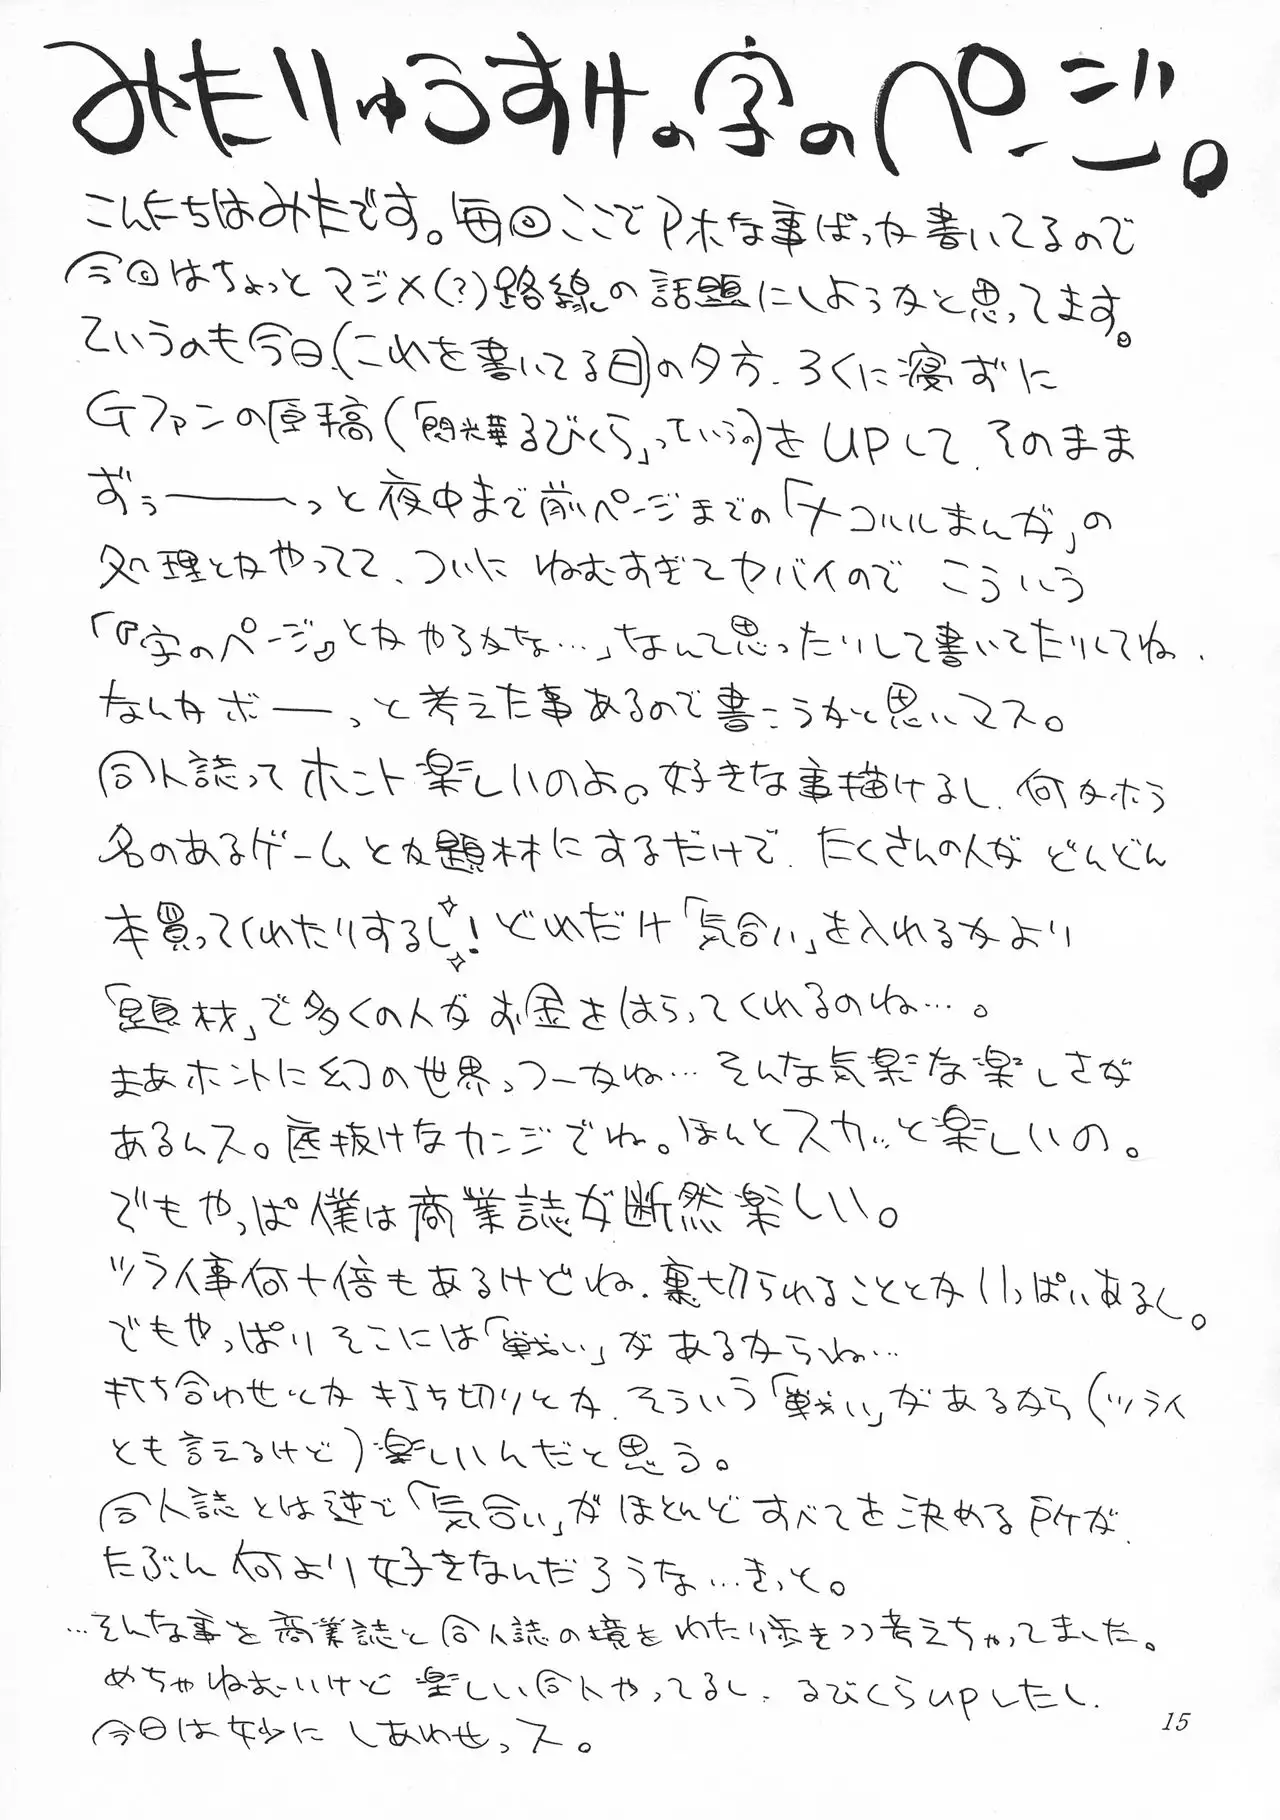 みたりゅうすけの字のページ。
こんにちはみたです。毎回ここでアホな事ばっか書いてるので
今回はちょっとマジメ(?)路線の話題にしようかと思ってます。
ていうのも今日(これを書いてる日)の夕方、ろくに寝ずに
Gファンの原稿(「閃光華るびくら」っていうの)をUPして、そのまま
ずぅーーーっと夜中まで前ページまでの「ナコルルまんが」の
処理とかやってて、ついにねむすぎてヤバイので こういう
「『字のページ』とかやるかな…」なんて思ったりして書いてたりしてね、
なんかボーーっと考えた事あるので書こうかと思いマス。
同人誌ってホント楽しいのよ。好きな事描けるし、何かホラ
名のあるゲームとか題材にするだけで、たくさんの人が どんどん
本買ってくれたりするし!どれだけ「気合い」を入れるかより
「題材」で多くの人がお金をはらってくれるのね…。
まあホントに幻の世界っつーかね…そんな気楽な楽しさが
あるんス。底抜けなカンジでね。ほんとスカッと楽しいの。
でもやっぱ僕は商業誌が断然楽しい。
ツライ事何十倍もあるけどね、裏切られることとかいっぱいあるし。
でもやっぱりそこには「戦い」があるからね…
打ち合わせとか打ち切りとか、そういう「戦い」があるから(ツライ
とも言えるけど)楽しいんだと思う。
同人誌とは逆で「気合い」がほとんどすべてを決める所が、
たぶん何より好きなんだろうな…きっと。
…そんな事を商業誌と同人誌の境をわたり歩きつつ考えちゃってました。
めちゃねむーいけど 楽しい同人やってるし、るびくらUPしたし、
今日は妙に しあわせっス。
15